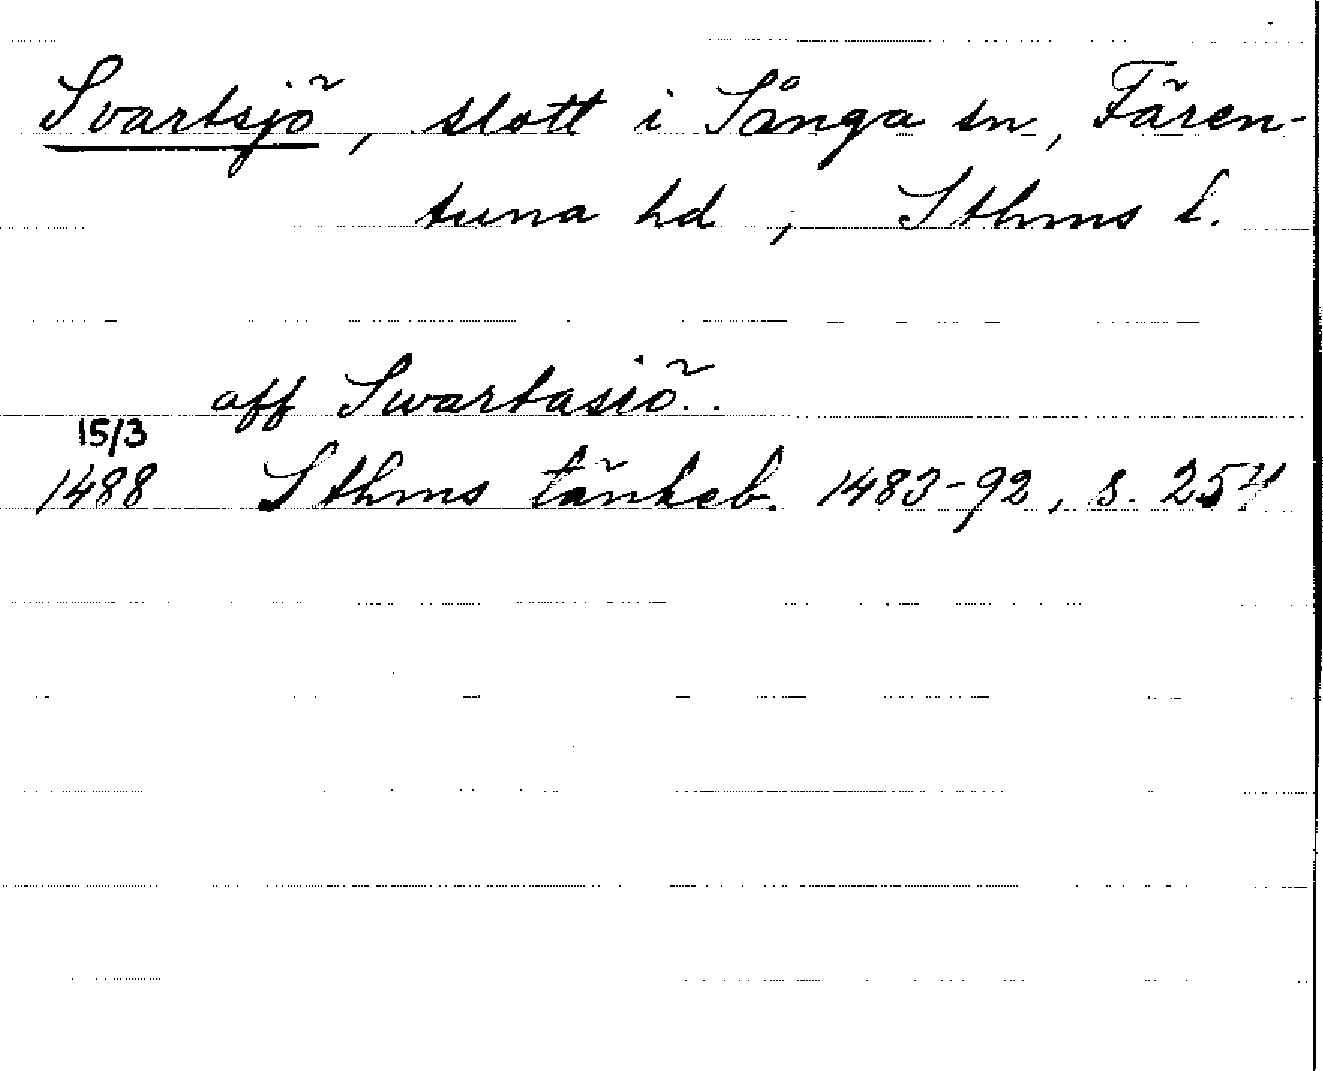 Svartsjö, slott i Sånga sn, Fären-
tuna hd, Sthms l.
aff Swartasiö..
15/3
1488 Sthms tänkeb. 1483-92, s. 254